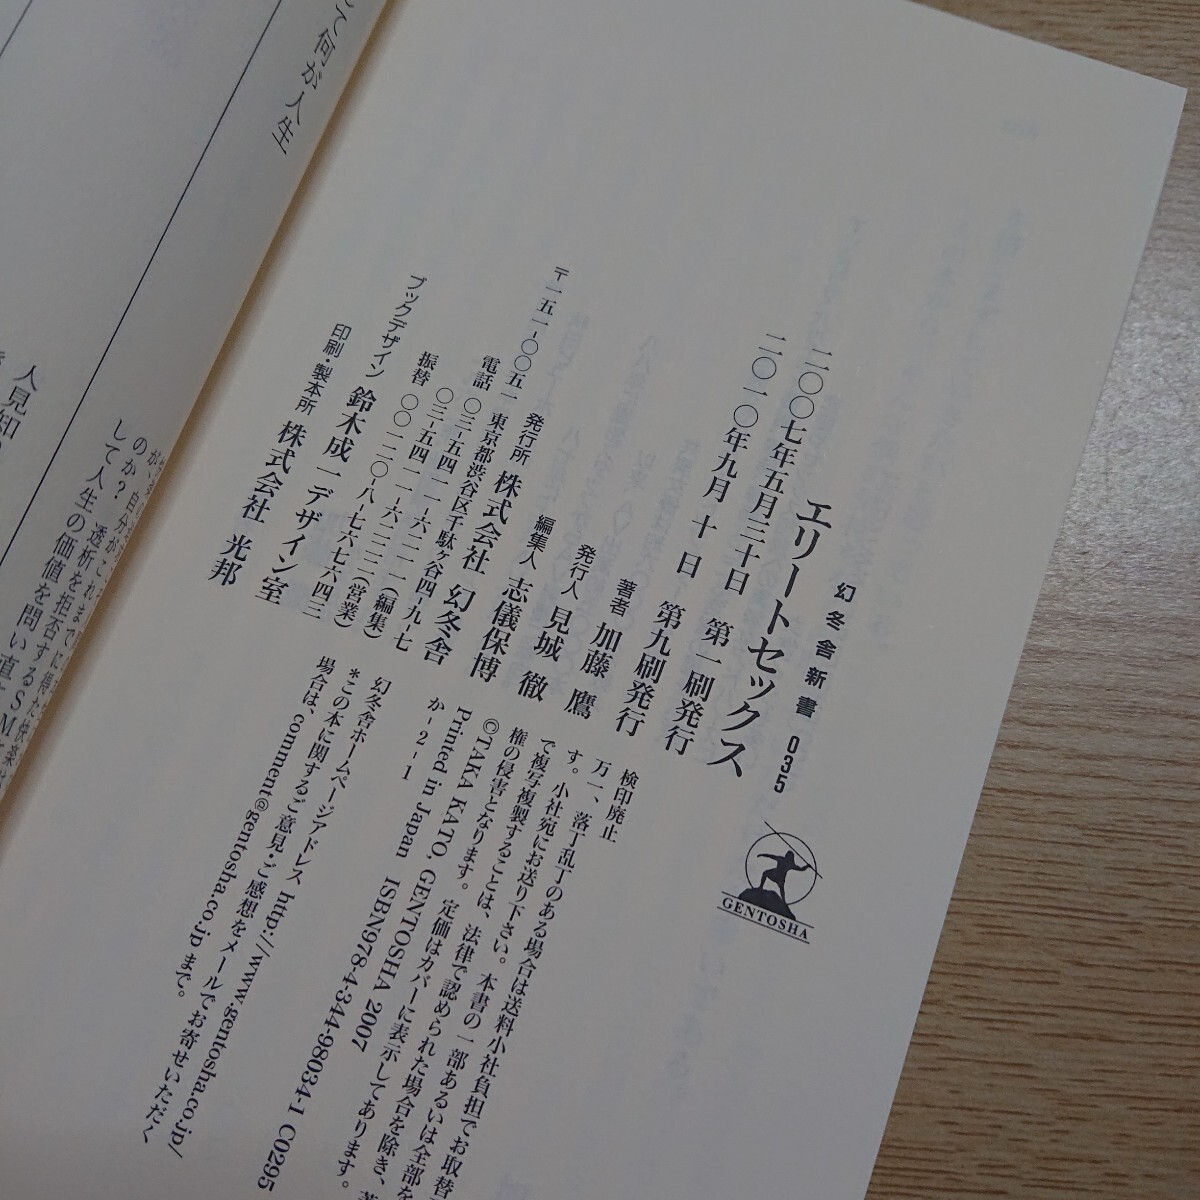 幻冬舎新書 035
エリートセックス
二〇〇七年五月三十日 第一刷発行
二〇一〇年九月 十 日 第九刷発行
著者 加藤 鷹
発行人 見城 徹
編集人 志儀保博
発行所 株式会社 幻冬舎
〒一五一-〇〇五一 東京都渋谷区千駄ヶ谷四-九-七
電話 〇三-五四一一-六二一一(編集)
〇三-五四一一-六二二二(営業)
振替 〇〇一二〇-八-七六七六四三
ブックデザイン 鈴木成一デザイン室
印刷・製本所 株式会社 光邦
GENTOSHA
検印廃止
万一、落丁乱丁のある場合は送料小社負担でお取替
す。小社宛にお送り下さい。本書の一部あるいは全部を
で複写複製することは、法律で認められた場合を除き、著
権の侵害となります。定価はカバーに表示してあります。
©TAKA KATO, GENTOSHA 2007
Printed in Japan ISBN978-4-344-98034-1 C0295
か-2-1
幻冬舎ホームページアドレス http://www.gentosha.co.jp/
*この本に関するご意見・ご感想をメールでお寄せいただく
場合は、comment@gentosha.co.jp まで。
て何が人生
人見知
のか? 透析を拒否するSM
して人生の価値を問い直